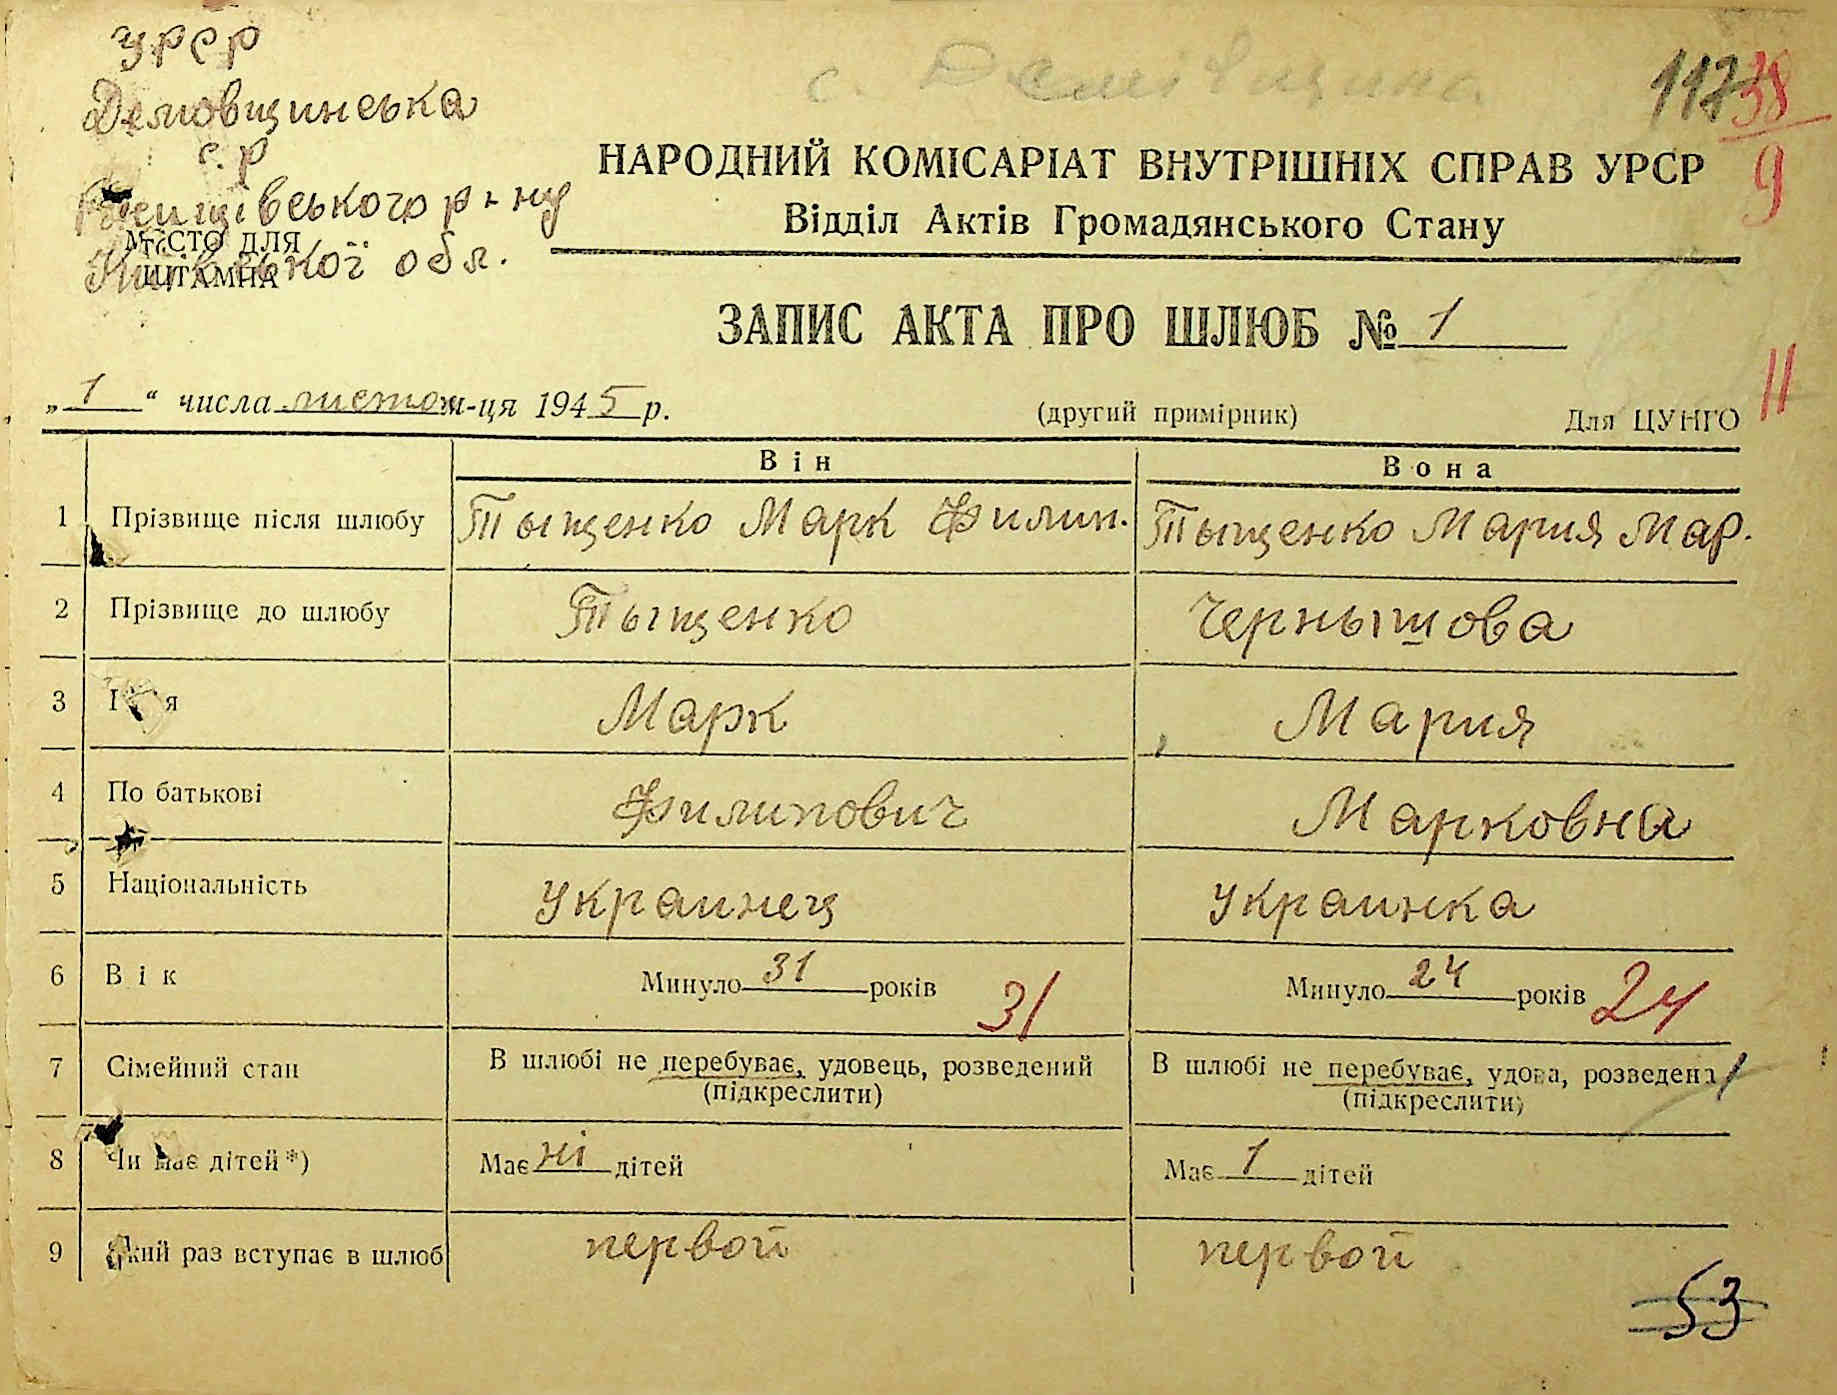 УРСР
с. Демівщина
117 38
9
Демовщинська
с. р
Ржищівського р-ну
Київської обл.
МІСТО ДЛЯ
ШТАМПА
НАРОДНИЙ КОМІСАРІАТ ВНУТРІШНІХ СПРАВ УРСР
Відділ Актів Громадянського Стану
ЗАПИС АКТА ПРО ШЛЮБ № 1
11
„1“ числа листоп м-ця 1945 р. (другий примірник) Для ЦУНГО
Він Вона
1 Прізвище після шлюбу Тыщенко Марк Филип. Тыщенко Мария Мар.
2 Прізвище до шлюбу Тыщенко Чернышова
3 Ім'я Марк Мария
4 По батькові Филипович Марковна
5 Національність Украинец Украинка
6 Вік Минуло 31 років 31 Минуло 24 років 24
7 Сімейний стан В шлюбі не перебуває, удовець, розведений В шлюбі не перебуває, удова, розведена
(підкреслити) (підкреслити)
8 Чи має дітей*) Має ні дітей Має 1 дітей
9 Який раз вступає в шлюб первой первой
53